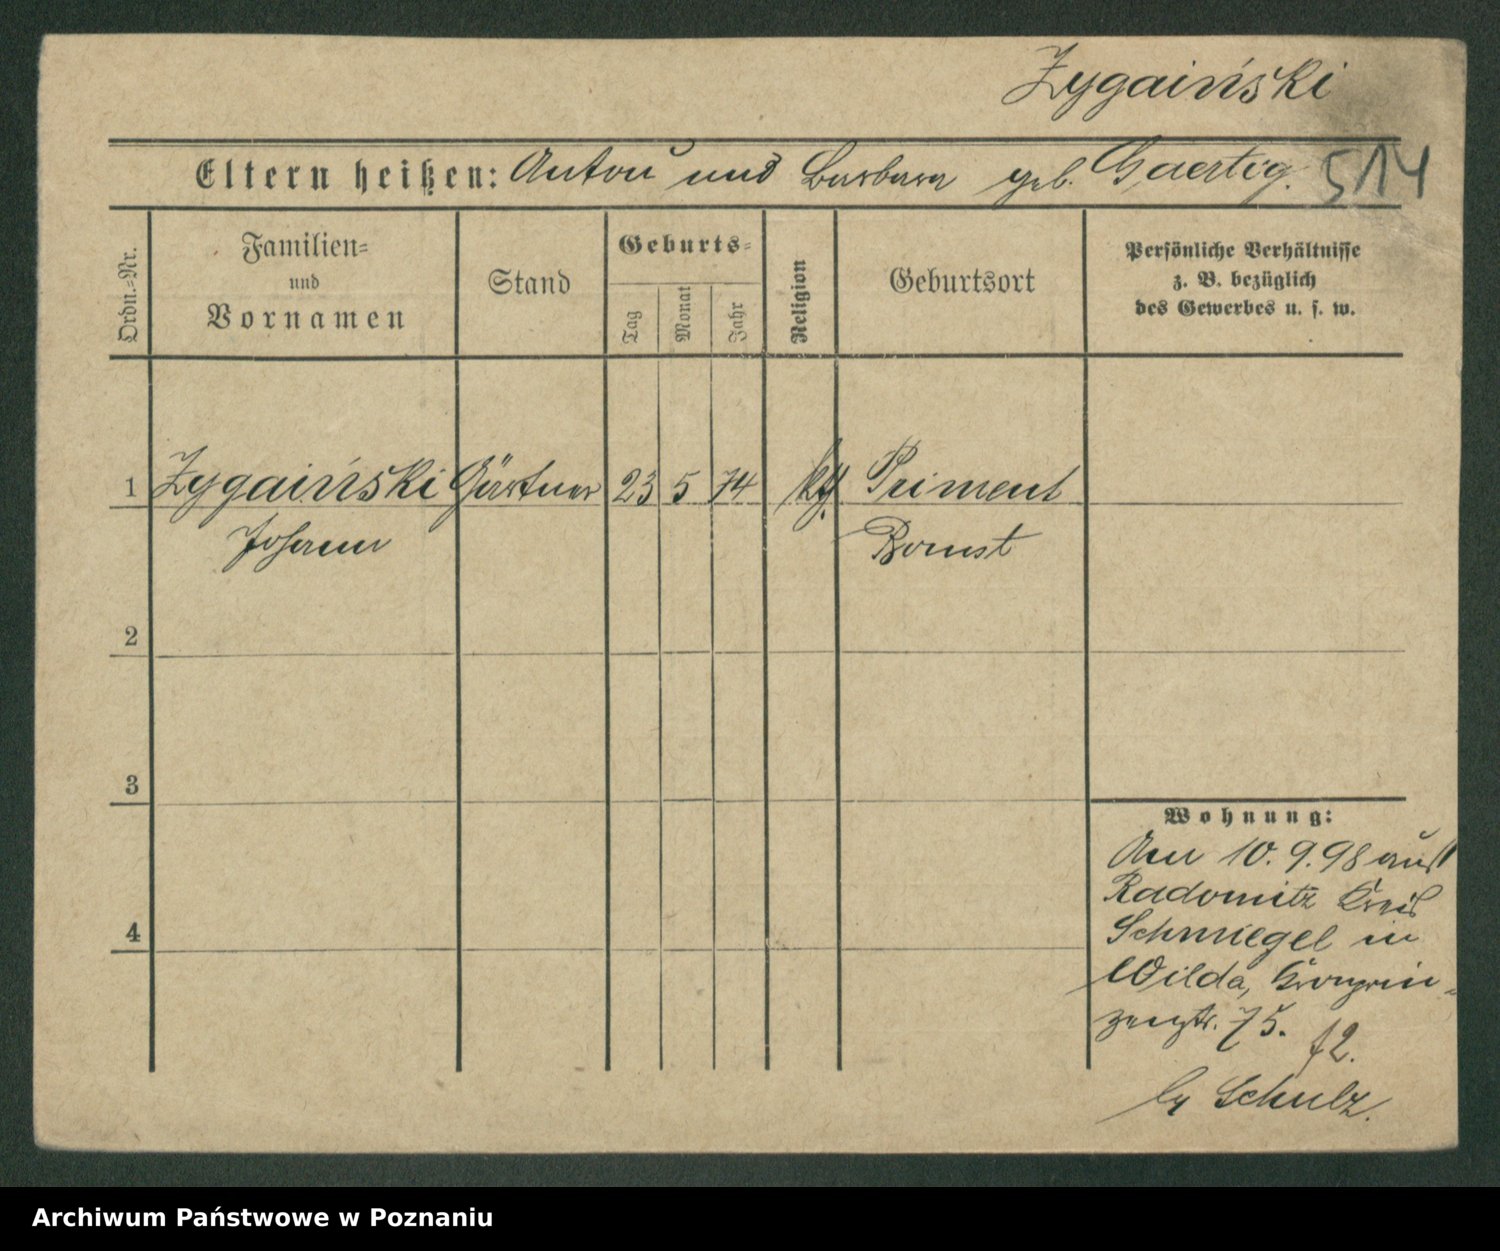 Zygaiński
Eltern heißen: Anton und Barbara geb. Gaertig. 514
Ordn.-Nr.
Familien-
und
Vornamen
Stand
Geburts-
Tag
Monat
Jahr
Religion
Geburtsort
Persönliche Verhältnisse
z. B. bezüglich
des Gewerbes u. s. w.
1 Zygaiński Gärtner 23 5 74 kth. Priment
Johann Bomst
2
3
4
Wohnung:
Am 10. 9. 98 aus
Radomitz Kreis
Schmiegel in
Wilda, Kronprin-
zenstr. 75.
by Schulz.
Archiwum Państwowe w Poznaniu